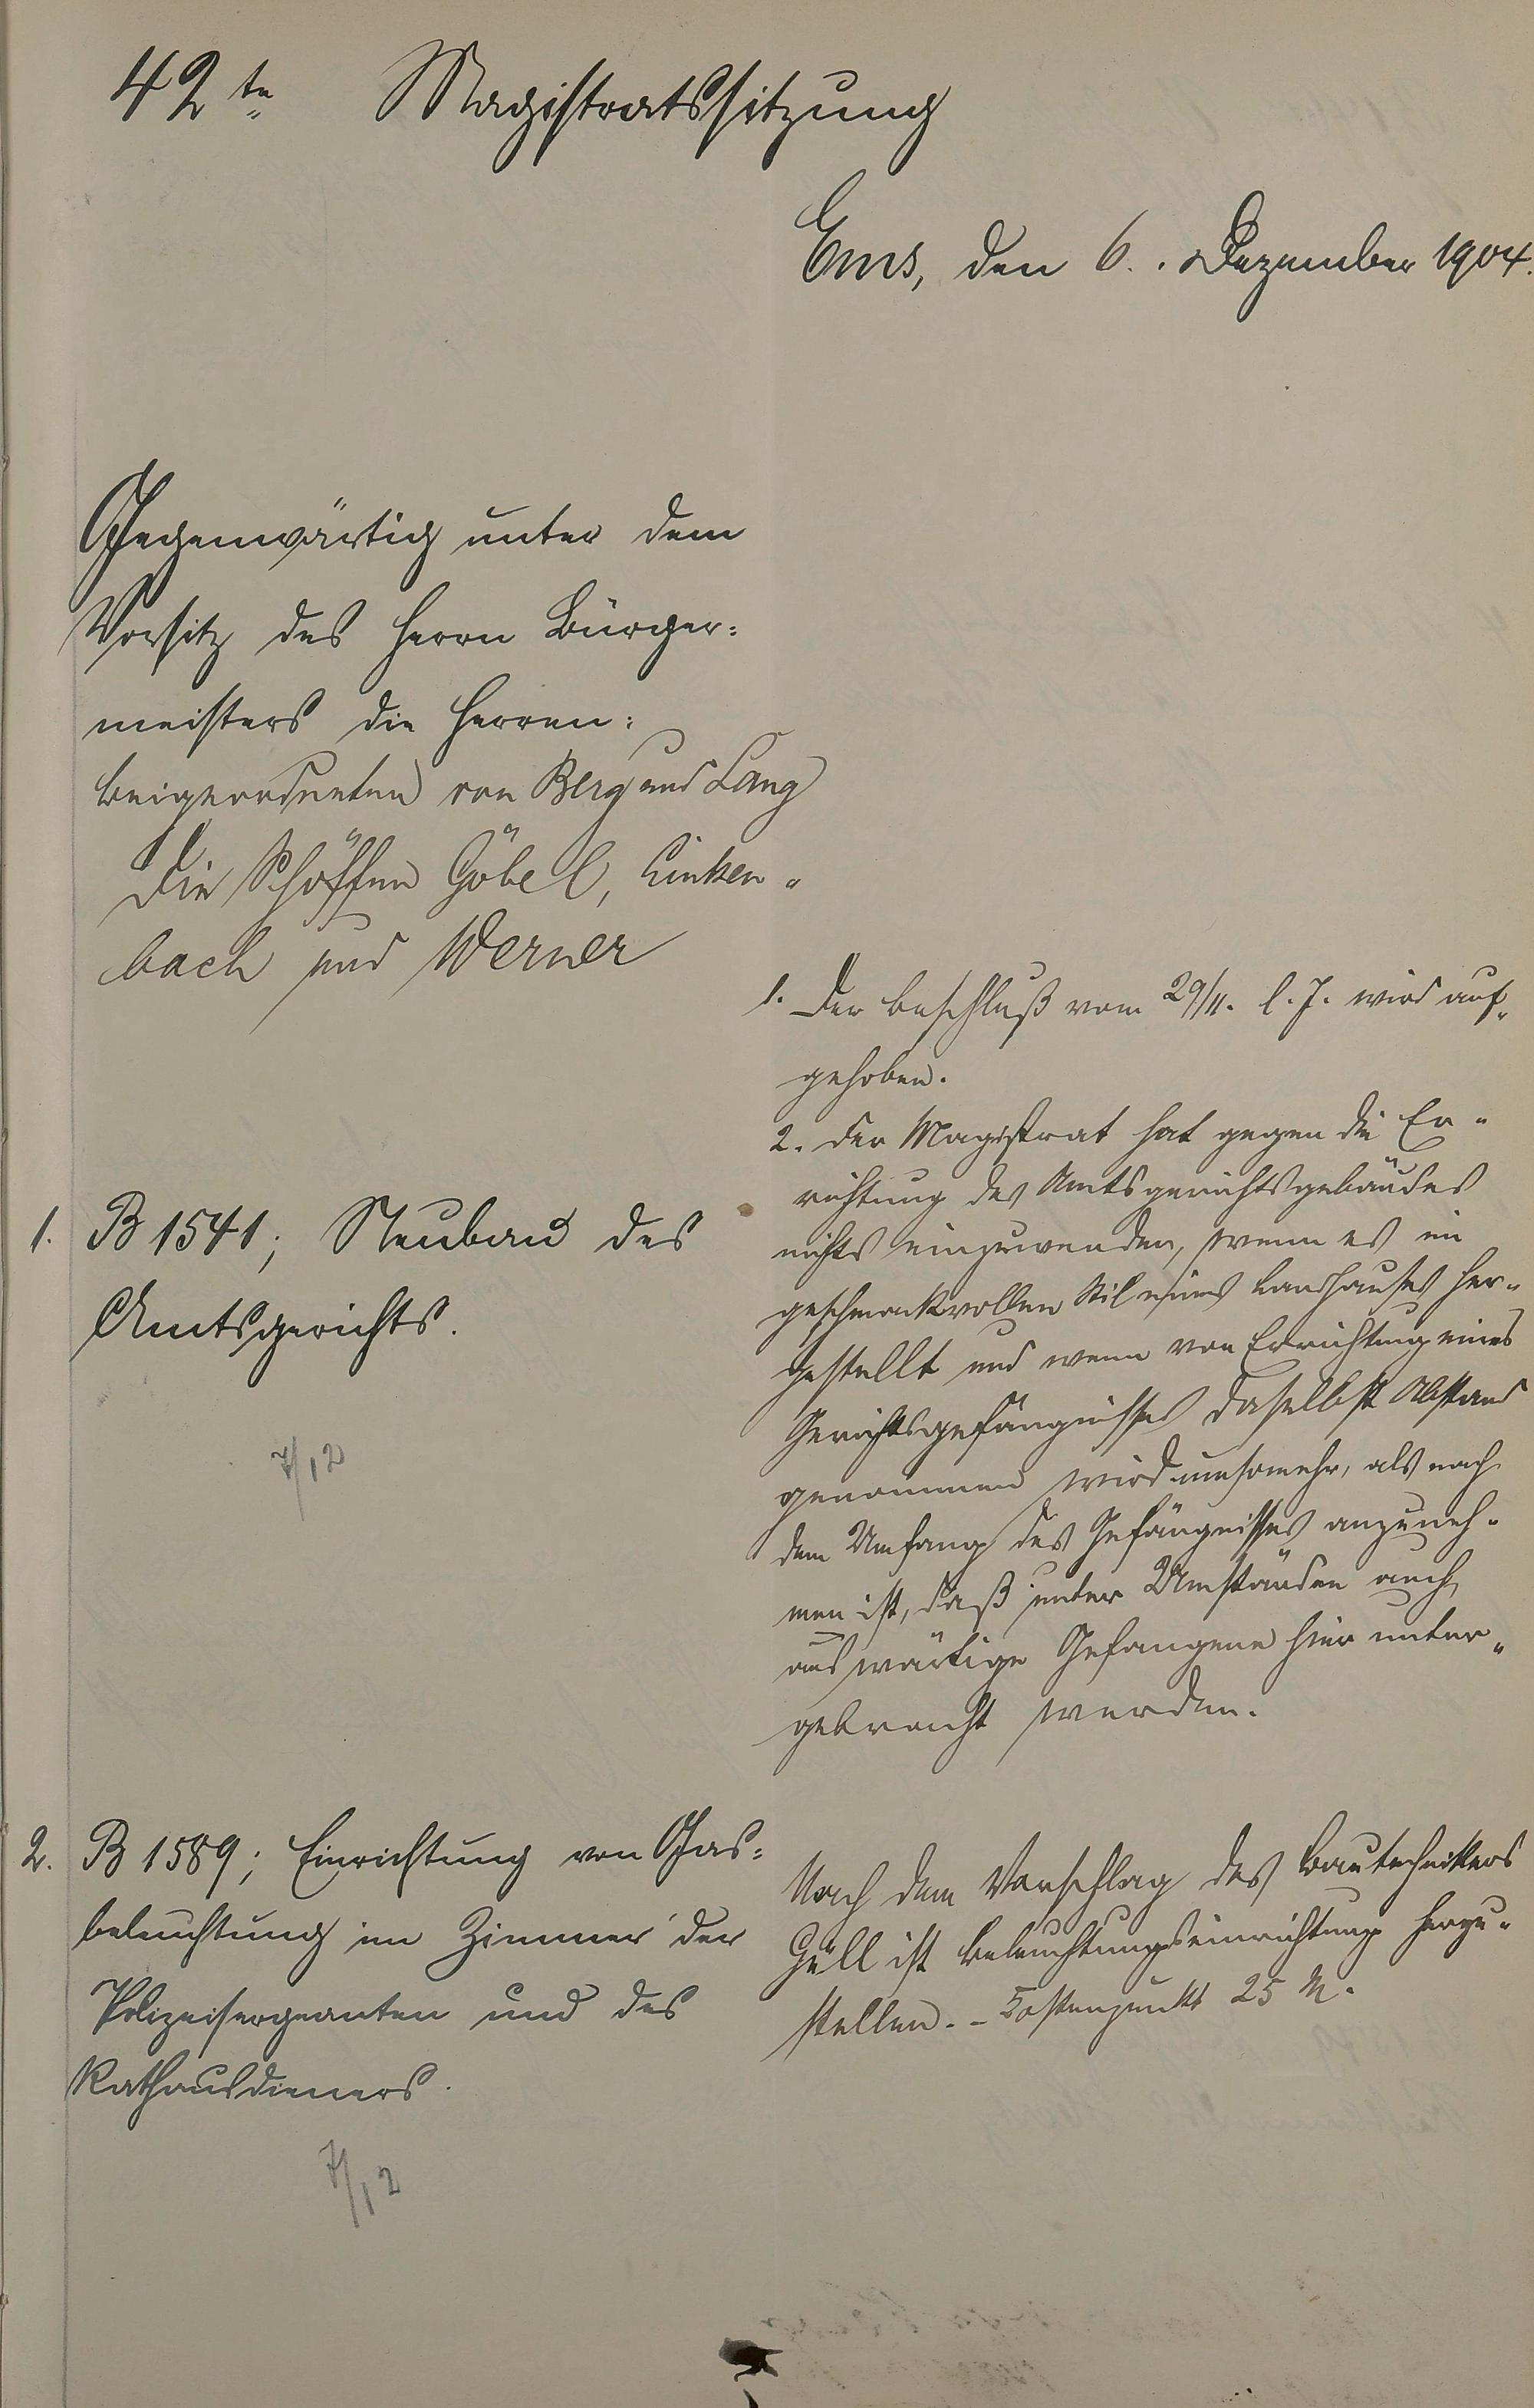 42te Magistratssitzung
Ems, den 6. Dezember 1904.
Gegenwärtig unter dem
Vorsitz des Herrn Bürger:
meisters die Herren:
Beigeordneten von Berg und Lang
Die Schöffen Göbel, Linken„
bach und Werner
1. B 1541; Neubau des
Amtsgerichts.
7/12
1. Der Beschluß vom 29/11. l. J. wird auf„
gehoben.
2. Der Magistrat hat gegen die Er„
richtung des Amtsgerichtsgebäudes
nichts einzuwenden, wenn es im
geschmackvollen Stil eines Landhauses her„
gestellt und wenn von Errichtung eines
Gerichtsgefängnisses daselbst Abstand
genommen wird umsomehr, als nach
dem Umfang des Gefängnisses anzuneh„
men ist, daß unter Umständen auch
auswärtige Gefangene hier unter„
gebracht werden.
2. B 1589; Einrichtung von Gas:
beleuchtung im Zimmer der
Polizeisergeanten und des
Rathausdieners.
7/12
Nach dem Vorschlag des Bautechnikers
Güll ist Beleuchtungseinrichtung herzu„
stellen. – Kostenpunkt 25 M.